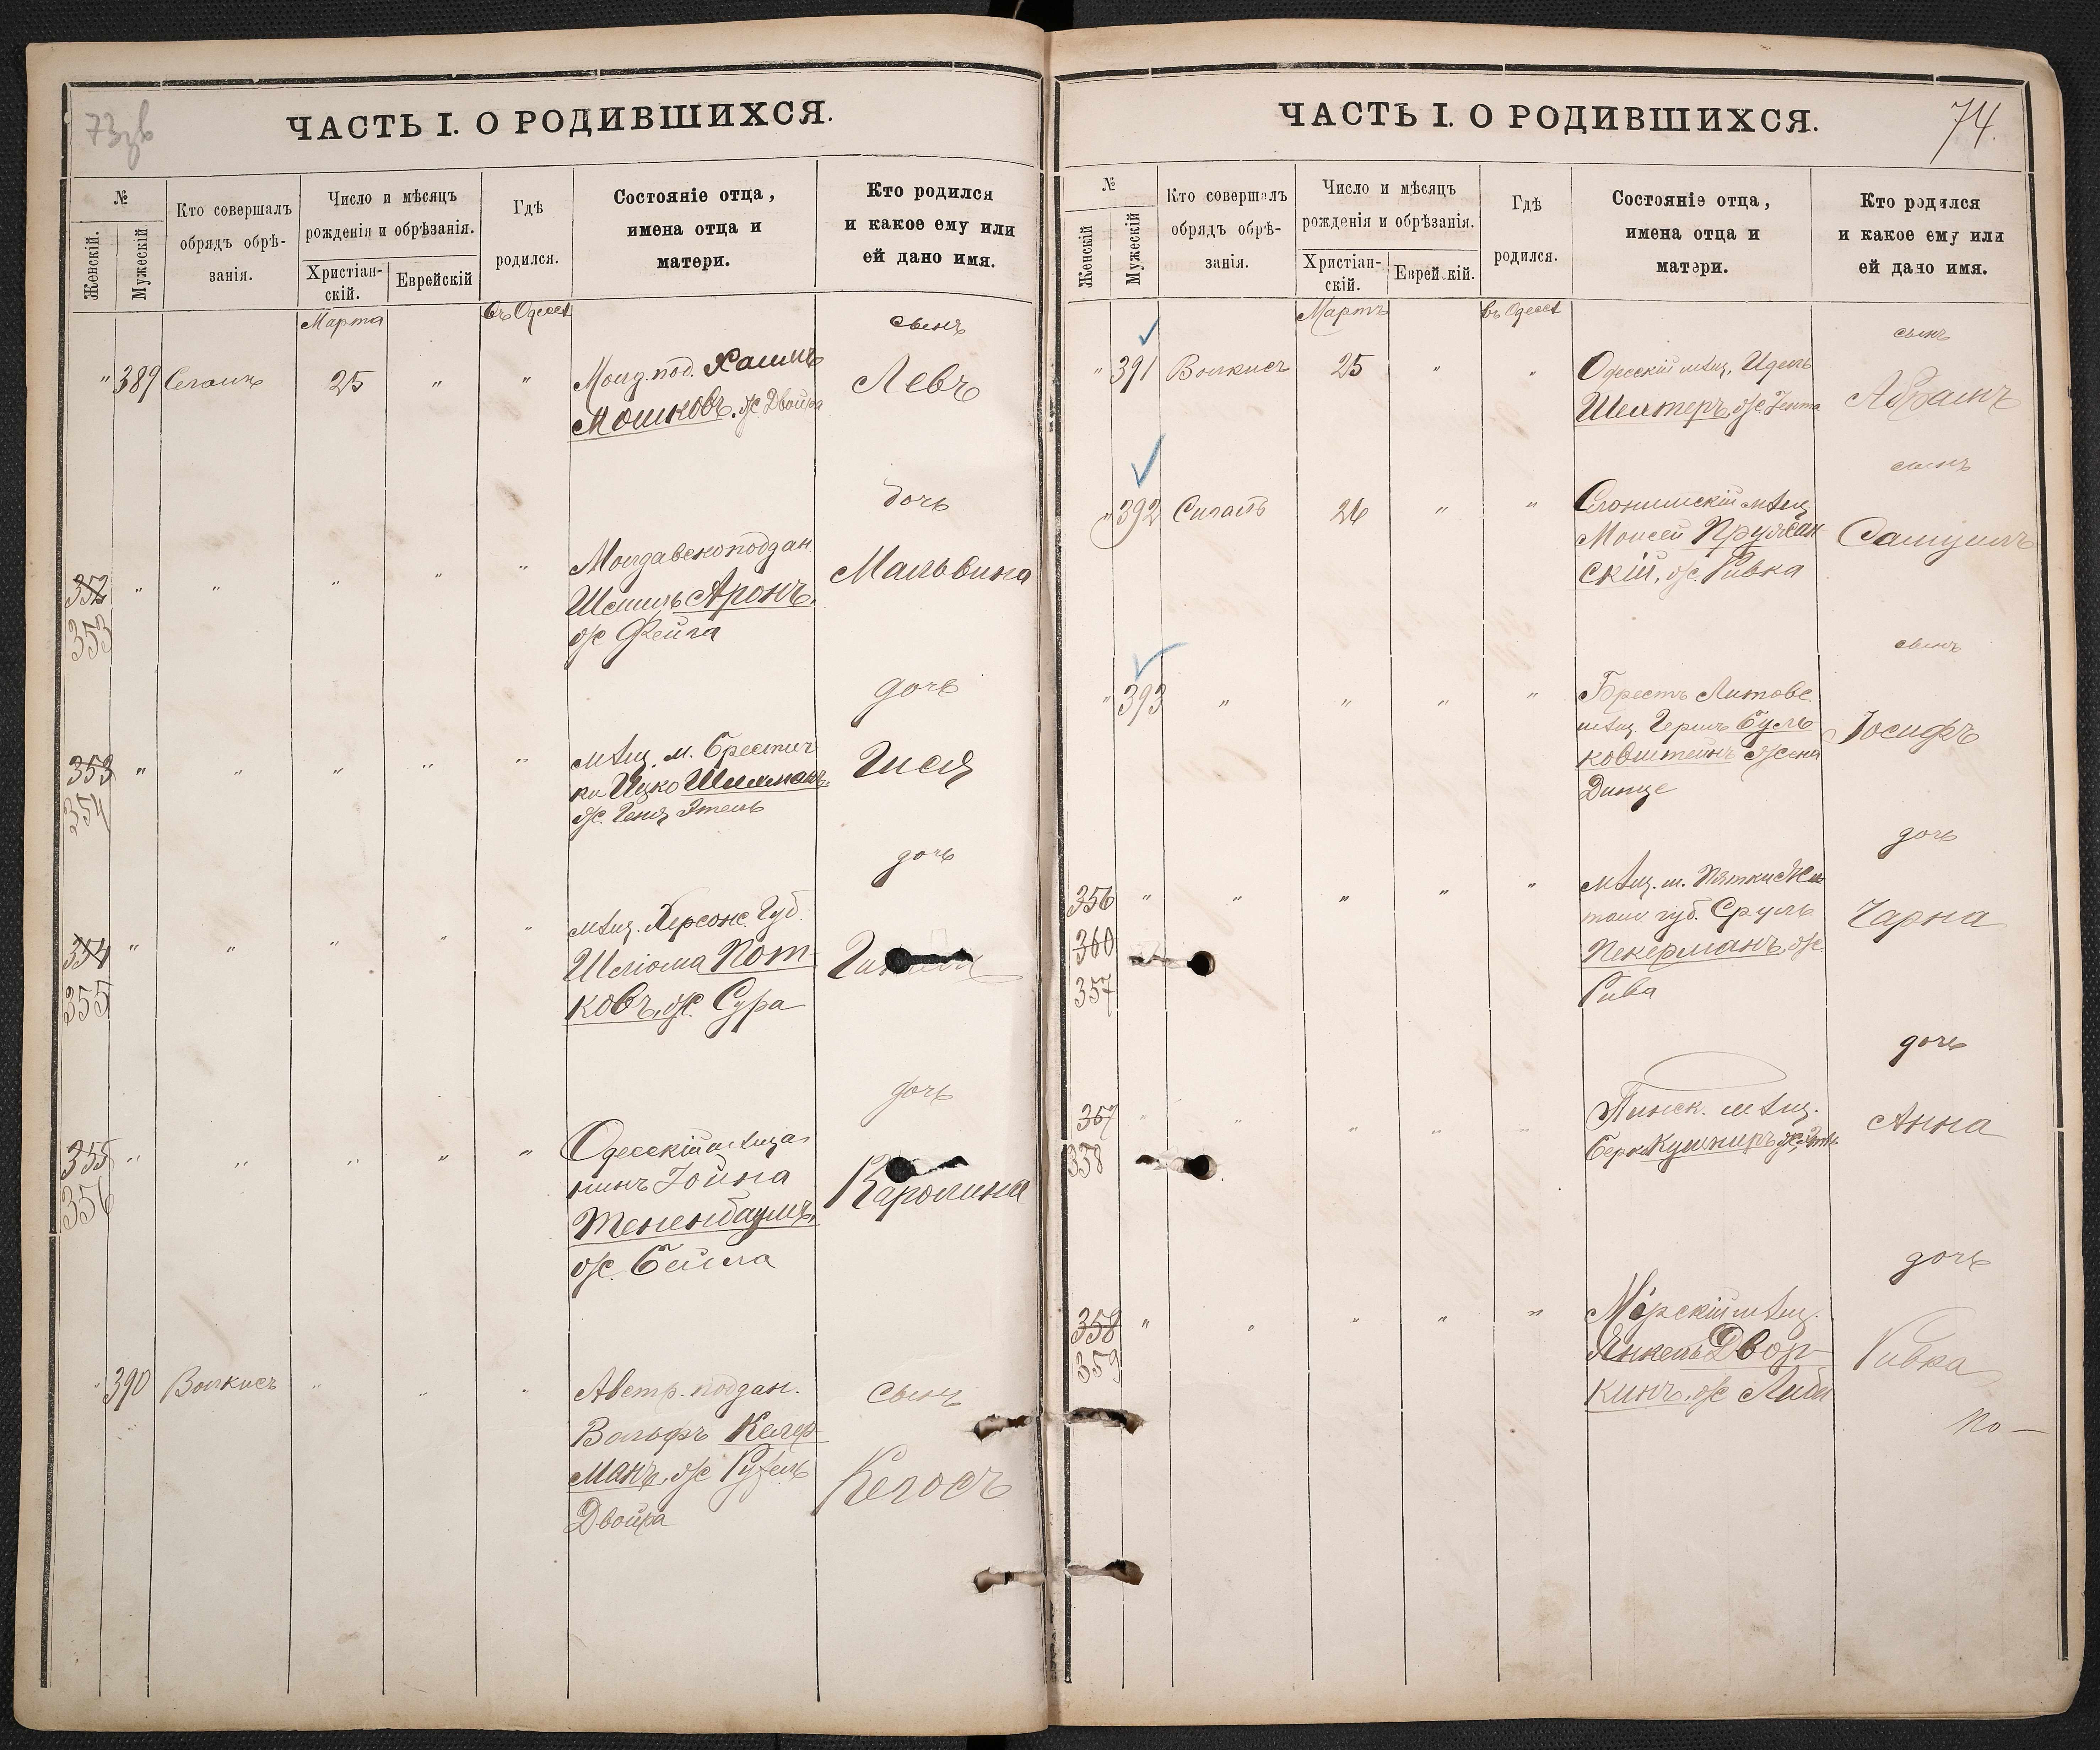 73
ЧАСТЬ I. О РОДИВШИХСЯ.
№
Женскій.
Мужескій
Кто совершалъ
обрядъ обрѣ-
занія.
Число и мѣсяцъ
рожденія и обрѣзанія.
Христіан-
скій.
Еврейскій
Гдѣ
родился.
Состояніе отца,
имена отца и
матери.
Кто родился
и какое ему или
ей дано имя.
Марта
въ Одессѣ
сынъ
" 389
25
"
"
Молд. под. Хаимъ
Мошковъ, ж. Двойра
Левъ
дочь
352
353
"
"
"
"
"
Молдавскоподдан.
Шмиль Аронъ,
ж Фейга
Мальвина
дочь
353
354
"
"
"
"
"
мѣщ. м.
ки Ицко
ж. Геня Этель
Гися
дочь
354
355
"
"
"
"
"
мѣщ. Херсонс. Губ.
Шлiома Пот-
ковъ, ж. Сура
дочь
355
356
"
"
"
"
"
Одесскій мѣща-
нинъ Іойна
Тененбаумъ,
ж. Бейла
Каролина
" 390
Волкисъ
"
"
"
Австр. поддан.
Вольфъ Келер-
манъ, ж Рухель
Двойра
сынъ
74.
ЧАСТЬ I. О РОДИВШИХСЯ.
№
Женскій
Мужескій
Кто совершалъ
обрядъ обрѣ-
занія.
Число и мѣсяцъ
рожденія и обрѣзанія.
Христіан-
скій.
Еврейскій.
Гдѣ
родился.
Состояніе отца,
имена отца и
матери.
Кто родился
и какое ему или
ей дано имя.
Мартъ
въ Одессѣ
сынъ
" 391
Волкисъ
25
"
"
Одесскій мѣщ. Идель
Шехтеръ, ж.
Абрамъ
сынъ
" 392
26
"
"
Слонимскій мѣщ
Моисей Пружан
скій, ж. Ривка
Самуилъ
сынъ
" 393
"
"
"
"
Брестъ Литовс.
мѣщ. Гершъ
ковштейнъ жена
Іосифъ
дочь
356
360
357
"
"
"
"
"
мѣщ. м. Пятки Жи
том. губ. Сруль
Пекерманъ, ж.
Рива
Чарна
дочь
357
358
"
"
"
"
"
Пинск. мѣщ.
Берко Кушниръ
Анна
дочь
358
359
"
"
"
"
"
Мірскій мѣщ.
Янкель Двор-
кинъ, ж Либа
Ривка
По-